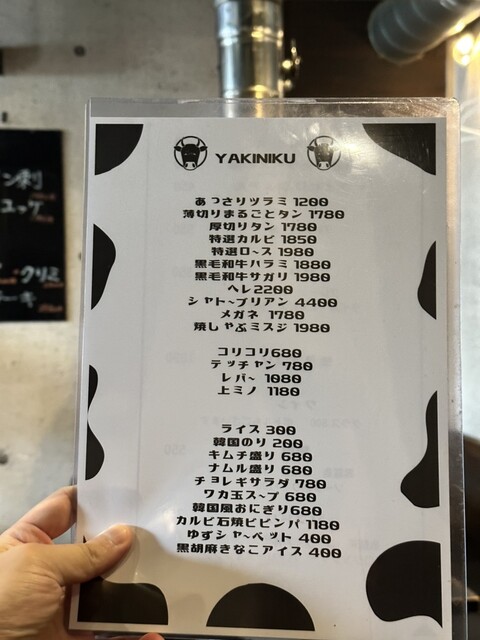 YAKINIKU
あっさりツラミ 1200
薄切りまるごとタン 1780
厚切りタン 1780
特選カルビ 1850
特選ロース 1980
黒毛和牛ハラミ 1880
黒毛和牛サガリ 1980
ヘレ2200
シャトーブリアン 4400
メガネ 1780
焼しゃぶミスジ 1980
コリコリ680
テッチャン 780
レバー 1080
上ミノ 1180
ライス 300
韓国のり 200
キムチ盛り 680
ナムル盛り 680
チョレギサラダ 780
ワカ玉スープ 680
韓国風おにぎり680
カルビ石焼ビビンパ 1180
ゆずシャーベット 400
黒胡麻きなこアイス 400
ン刺
ユッケ
クリミ
ーキ